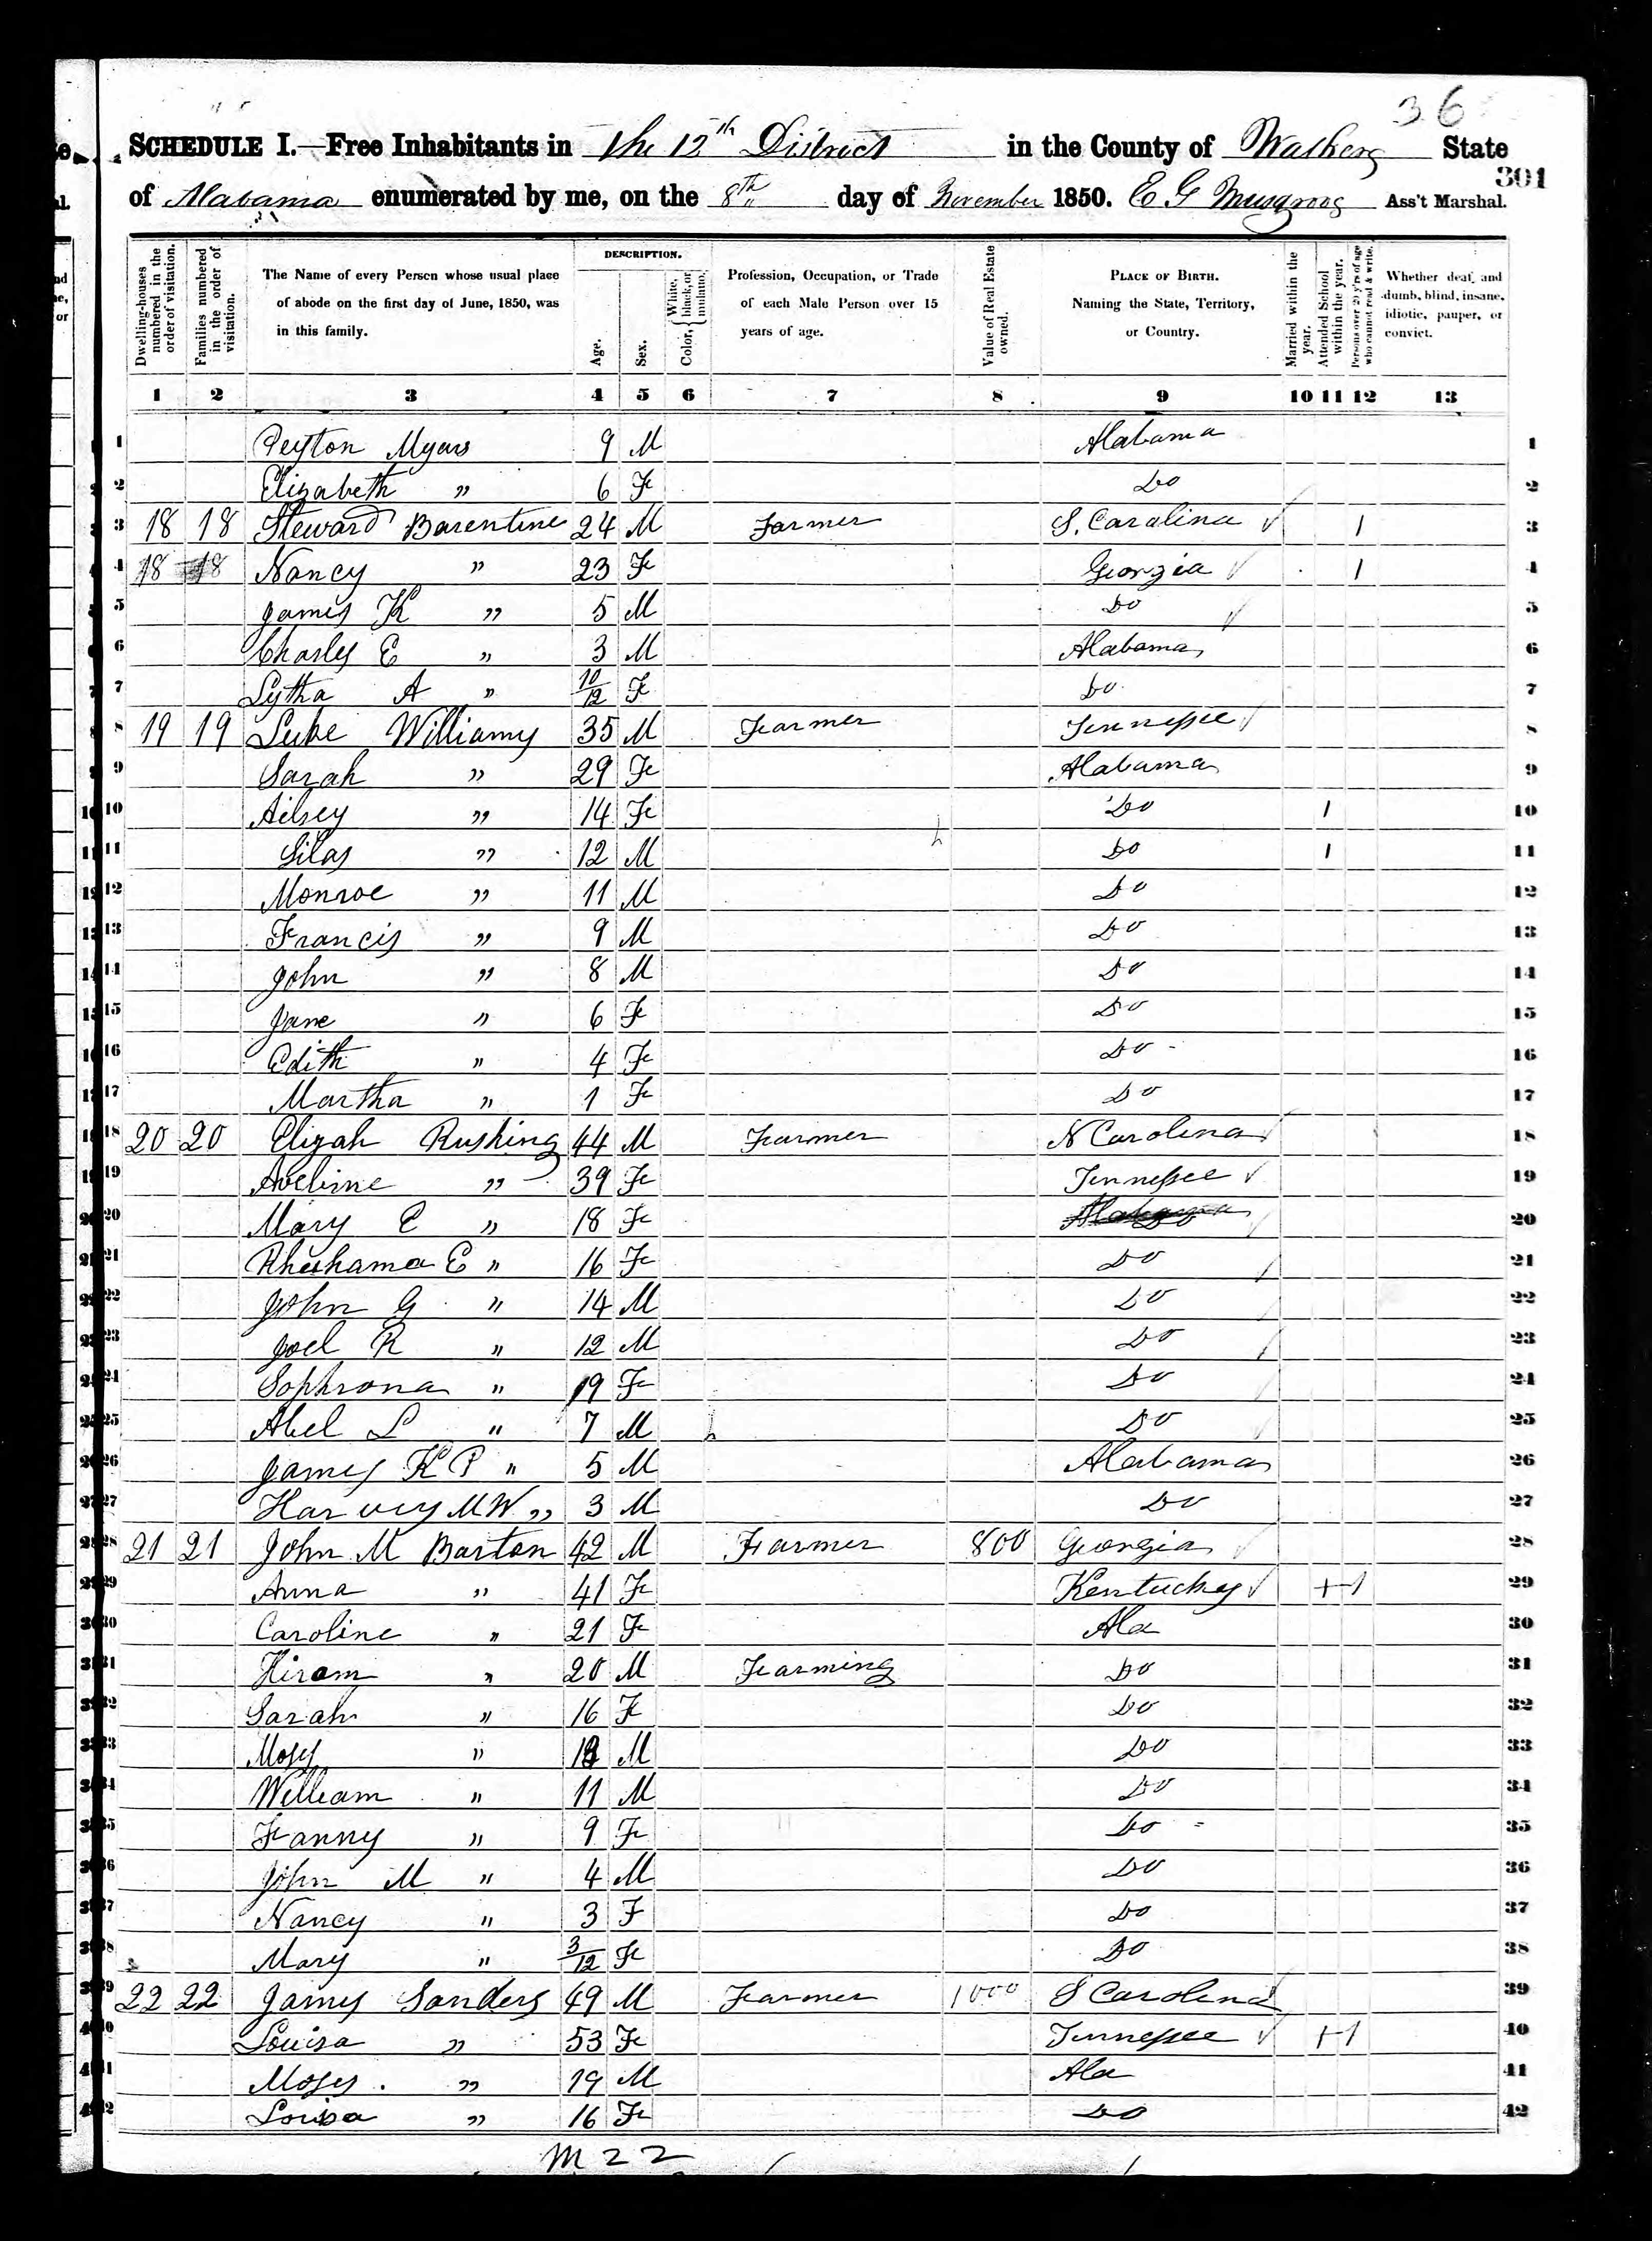 36
SCHEDULE I.—Free Inhabitants in the 12th District in the County of Walker State
301
of Alabama enumerated by me, on the 8th day of November 1850. E G Musgrove Ass't Marshal.
Dwelling-houses numbered in the order of visitation.
Families numbered in the order of visitation.
The Name of every Person whose usual place of abode on the first day of June, 1850, was in this family.
DESCRIPTION.
Age.
Sex.
Color, { White, black, or mulatto.
Profession, Occupation, or Trade of each Male Person over 15 years of age.
Value of Real Estate owned.
PLACE OF BIRTH. Naming the State, Territory, or Country.
Married within the year.
Attended School within the year.
Persons over 20 y'rs of age who cannot read & write.
Whether deaf and dumb, blind, insane, idiotic, pauper, or convict.
1 2 3 4 5 6 7 8 9 10 11 12 13
1 Peyton Myars 9 M Alabama 1
2 Elizabeth " 6 F Do 2
3 18 18 Steward Barentine 24 M Farmer S. Carolina 1 3
4 18 18 Nancy " 23 F Georgia 1 4
5 James K " 5 M Do 5
6 Charley E " 3 M Alabama 6
7 Lytha A " 10/12 F Do 7
8 19 19 Luke Williams 35 M Farmer Tennessee 8
9 Sarah " 29 F Alabama 9
10 Ailsey " 14 F Do 1 10
11 Silas " 12 M Do 1 11
12 Monroe " 11 M Do 12
13 Francis " 9 M Do 13
14 John " 8 M Do 14
15 Jane " 6 F Do 15
16 Edith " 4 F Do 16
17 Martha " 1 F Do 17
18 20 20 Elizah Rushing 44 M Farmer N Carolina 18
19 Aveline " 39 F Tennessee 19
20 Mary E " 18 F Do 20
21 Rhuhama E " 16 F Do 21
22 John G " 14 M Do 22
23 Joel R " 12 M Do 23
24 Sophrona " 19 F Do 24
25 Abel L " 7 M Do 25
26 James K P " 5 M Alabama 26
27 Harvey M W " 3 M Do 27
28 21 21 John M Barton 42 M Farmer 800 Georgia 28
29 Anna " 41 F Kentucky + 1 29
30 Caroline " 21 F Ala 30
31 Hiram " 20 M Farming Do 31
32 Sarah " 16 F Do 32
33 Moses " M Do 33
34 William " 11 M Do 34
35 Fanny " 9 F Do 35
36 John M " 4 M Do 36
37 Nancy " 3 F Do 37
38 Mary " 3/12 F Do 38
39 22 22 James Sanders 49 M Farmer 1000 S Carolina 39
40 Louisa " 53 F Tennessee + 1 40
41 Moses " 19 M Ala 41
42 Louisa " 16 F Do 42
M 22